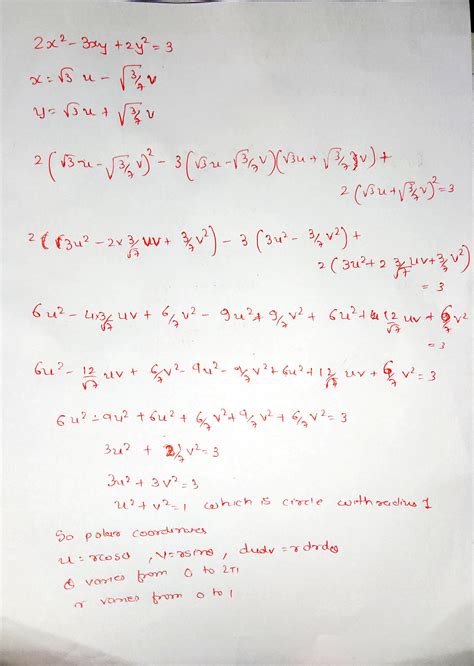 2x² - 3xy + 2y² = 3
x = √3 u - √3/7 v
y = √3 u + √3/7 v
2(√3 u - √3/7 v)² - 3(√3 u - √3/7 v)(√3 u + √3/7 v) +
2(√3 u + √3/7 v)² = 3
2(3u² - 2x 3/√7 uv + 3/7 v²) - 3(3u² - 3/7 v²) +
2(3u² + 2 3/√7 uv + 3/7 v²)
= 3
6u² - 4x3/√7 uv + 6/7 v² - 9u² + 9/7 v² + 6u² + 12/√7 uv + 6/7 v²
= 3
6u² - 12/√7 uv + 6/7 v² - 9u² - 9/7 v² + 6u² + 12/√7 uv + 6/7 v² = 3
6u² - 9u² + 6u² + 6/7 v² + 9/7 v² + 6/7 v² = 3
3u² + 21/7 v² = 3
3u² + 3v² = 3
u² + v² = 1 which is circle with radius 1
So polar coordinates
u = rcosθ , v = rsinθ , dudv = r drdθ
θ varies from 0 to 2π
r varies from 0 to 1